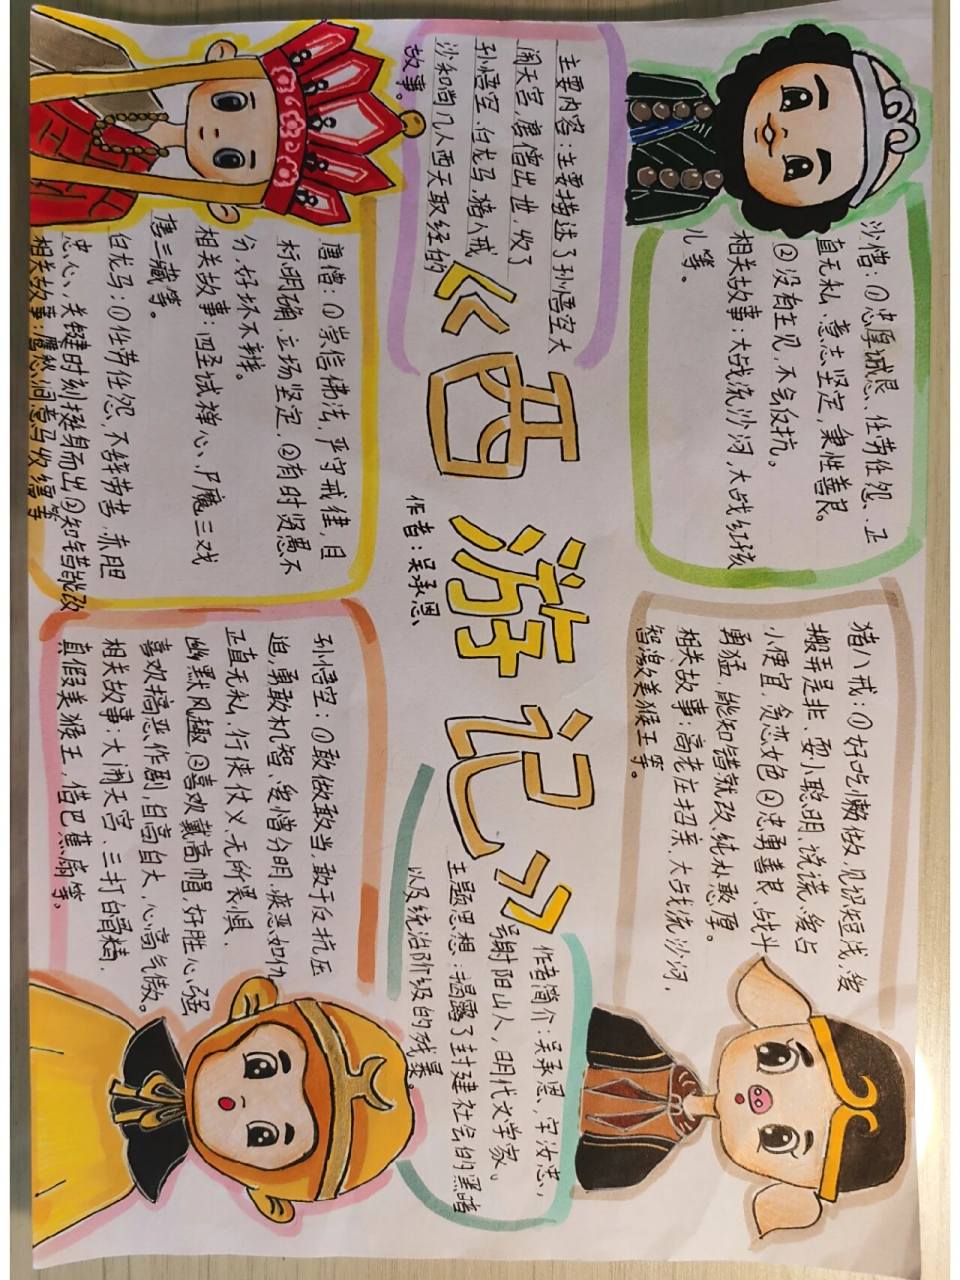 《西游记》
作者：吴承恩
沙僧：①忠厚诚恳、任劳任怨、正
直无私、意志坚定，秉性善良。
②没有主见，不会反抗。
相关故事：大战流沙河，大战红孩
儿等。
主要内容：主要描述了孙悟空大
闹天宫，唐僧出世，收了
孙悟空、白龙马，猪八戒
沙和尚几人西天取经的
故事。
唐僧：①崇信佛法，严守戒律，目
标明确、立场坚定，②有时贤愚不
分，好坏不辨。
相关故事：四圣试禅心、尸魔三戏
唐三藏等。
白龙马：①任劳任怨，不辞劳苦，赤胆
忠心，关键时刻挺身而出②知错能改
相关故事：鹰愁涧意马收缰等
猪八戒：①好吃懒做，见识短浅，爱
搬弄是非、耍小聪明、说谎、爱占
小便宜，贪恋女色②忠勇善良、战斗
勇猛，能知错就改，纯朴憨厚。
相关故事：高老庄招亲、大战流沙河，
智激美猴王等。
作者简介：吴承恩，字汝忠，
号射阳山人，明代文学家。
主题思想：揭露了封建社会的黑暗
以及统治阶级的残暴。
孙悟空：①敢做敢当，敢于反抗压
迫，勇敢机智、爱憎分明，疾恶如仇
正直无私，行侠仗义，无所畏惧，
幽默风趣，②喜欢戴高帽，好胜心强
喜欢搞恶作剧，自高自大，心高气傲。
相关故事：大闹天宫，三打白骨精，
真假美猴王，借巴蕉扇等。